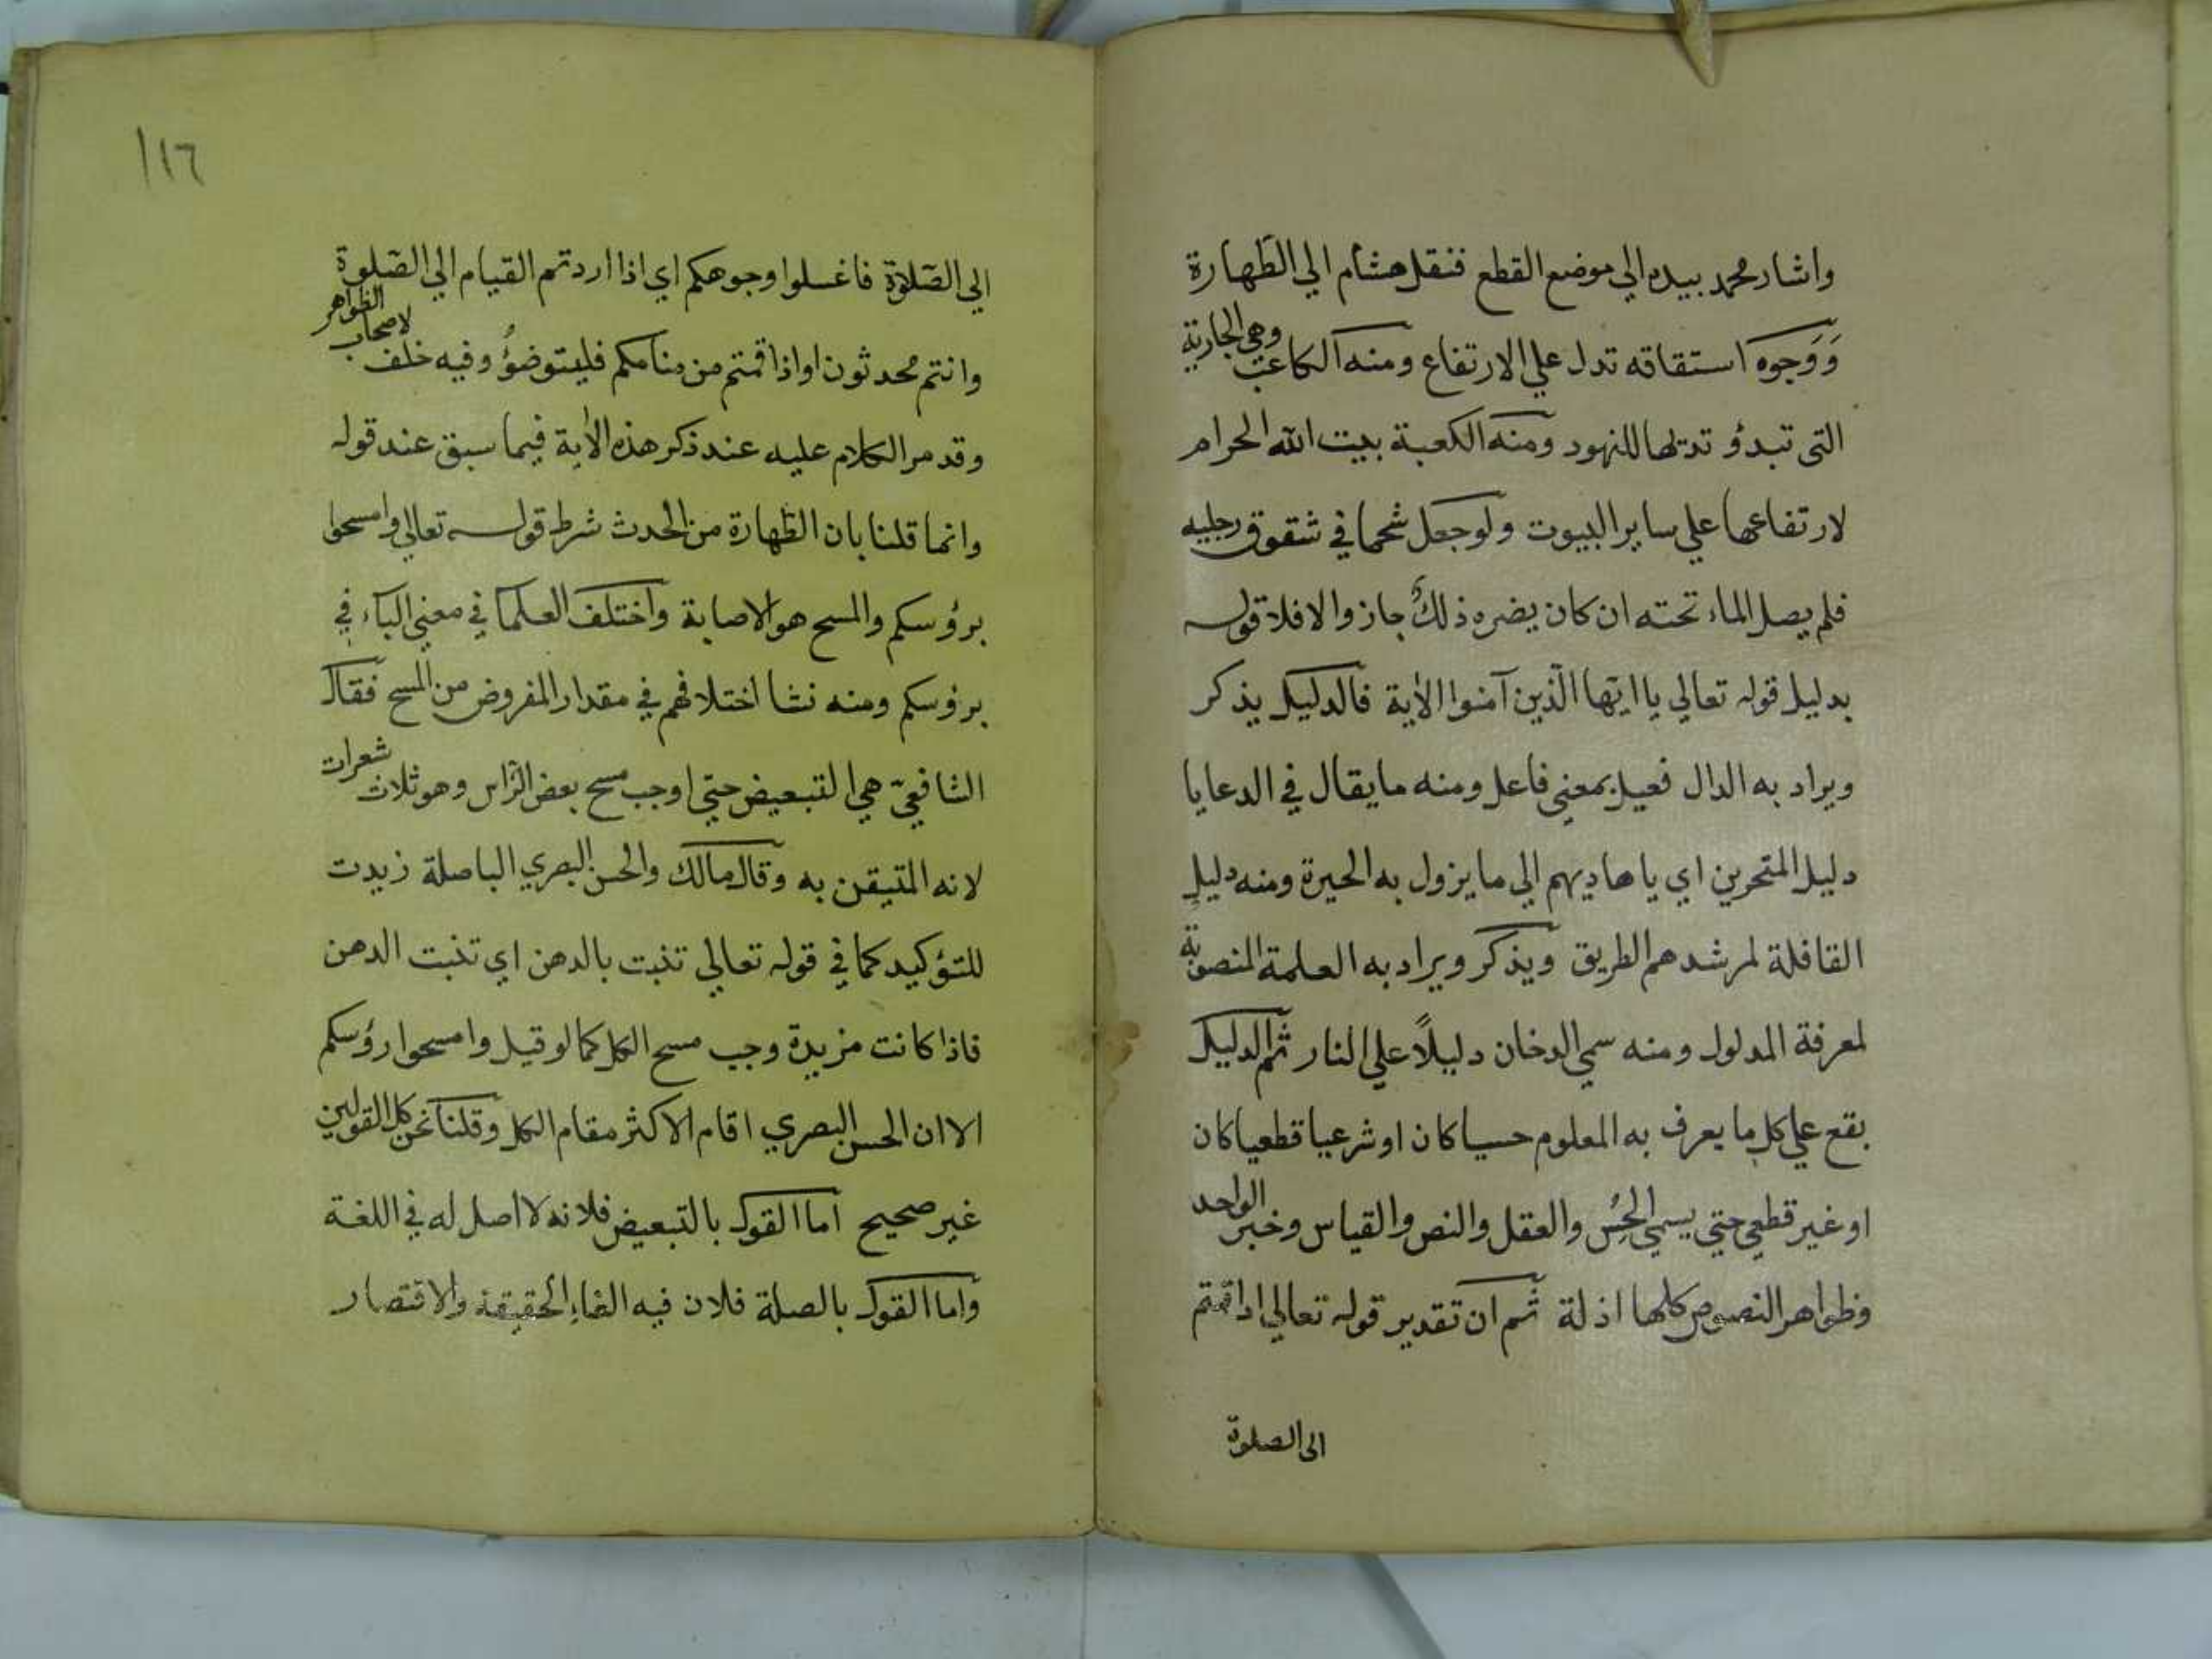 واشار محمد بيده الي موضع القطع فنقل هشام الي الطهارة
وَوَجوه استقاقه تدل علي الارتفاع ومنه الكاعب وهي الجارية
التي تبدؤ ثديها للنهود ومنه الكعبة بيت الله الحرام
لارتفاعها علي ساير البيوت ولو جعل شحما في شقوق رجليه
فلم يصل الماء تحته ان كان يضره ذلك جاز والا فلا قوله
بدليل قوله تعالي يا ايها الذين آمنوا الاية فالدليل يذكر
ويراد به الدال فعيل بمعني فاعل ومنه ما يقال في الدعا يا
دليل المتحرين اي يا هاديهم الي ما يزول به الحيرة ومنه دليل
القافلة لمرشدهم الطريق ويذكر ويراد به العلمة المنصوبة
لمعرفة المدلول ومنه سمي الدخان دليلاً علي النار ثم الدليل
يقع علي كل ما يعرف به المعلوم حسيا كان او شرعيا قطعيا كان
او غير قطعي حتي يسمي الحِس والعقل والنص والقياس وخبر الواحد
وظواهر النصوص كلها اذلة ثم ان تقدير قوله تعالي اذا قمتم
الى الصلوة
١١٦
الي الصّلاة فاغسلوا وجوهكم اي اذا اردتم القيام الي الصّلوة
وانتم محدثون او اذا قمتم من منامكم فليتوضؤُ وفيه خلف لاصحاب الظواهر
وقد مر الكلام عليه عند ذكر هذه الاية فيما سبق عند قوله
وانما قلنا بان الطّهارة من الحدث شرط قوله تعالي وامسحوا
برؤسكم والمسح هو الاصابة واختلف العلما في معني الباء في
برؤسكم ومنه نشا اختلافهم في مقدار المفروض من المسح فقال
الشافعيّ هي التبعيض حتي اوجب مسح بعض الرّاس وهو ثلاث شعرات
لانه المتيقن به وقال مالك والحسن البصري الباصلة زيدت
للتؤكيد كما في قوله تعالي تنبت بالدهن اي تنبت الدهن
فاذا كانت مزيدة وجب مسح الكل كما لو قيل وامسحوا رؤسكم
الا ان الحسن البصري اقام الاكثر مقام الكل وقلنا نحن كل القولين
غير صحيح اما القول بالتبعيض فلانه لا اصل له في اللغة
واما القول بالصلة فلان فيه الغاء الحقيقة والاقتصار